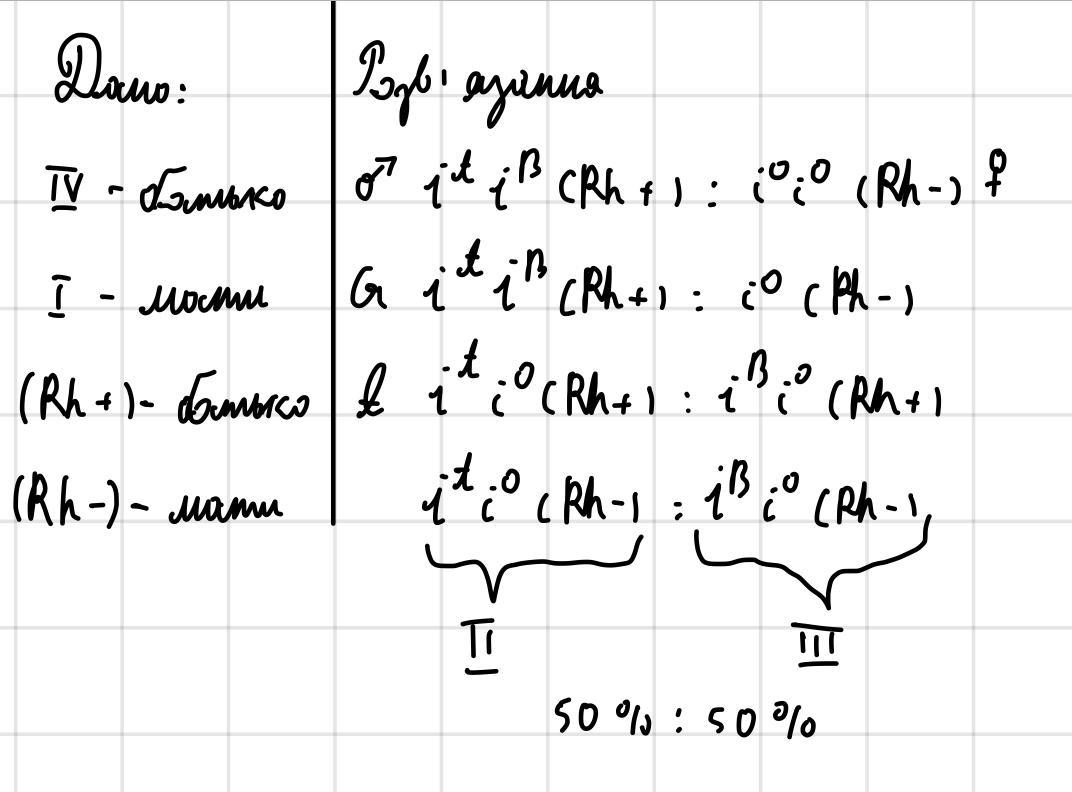 Дано:
Розв'язання
IV - батько
♂ i^A i^B (Rh+) : i^0 i^0 (Rh-) ♀
I - мати
G i^A i^B (Rh+) : i^0 (Rh-)
(Rh+) - батько
i^A i^0 (Rh+) : i^B i^0 (Rh+)
(Rh-) - мати
i^A i^0 (Rh-) : i^B i^0 (Rh-)
II
III
50% : 50%